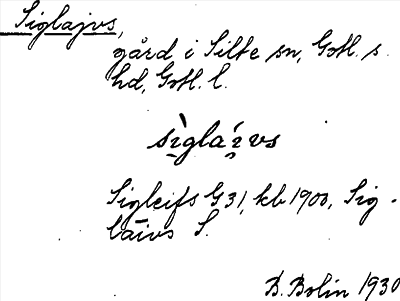 Siglajvs,
gård i Silte sn, Gotl. s.
hd, Gotl. l.
sìgla´i̯vs
Sigleifs G31, kb 1900, Sig-
laivs S.
D. Bolin 1930